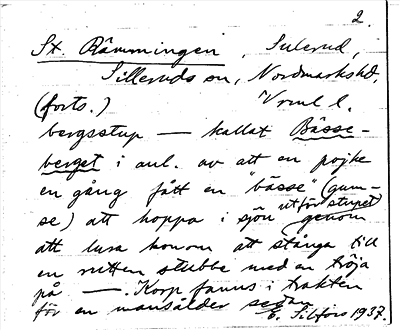 2.
St. Rämmingen, Sulerud,
Silleruds sn, Nordmarkshd.
(forts.) Vrml l.
bergsstup — kallat Bässe-
berget i anl. av att en pojke
en gång fått en "bässe" (gum-
se) att hoppa i sjön utför stupet genom
att lura honom att stånga till
en rutten stubbe med en tröja
på —. Korp fanns i trakten
för en mansålder sedan
E. Sibfors 1937.